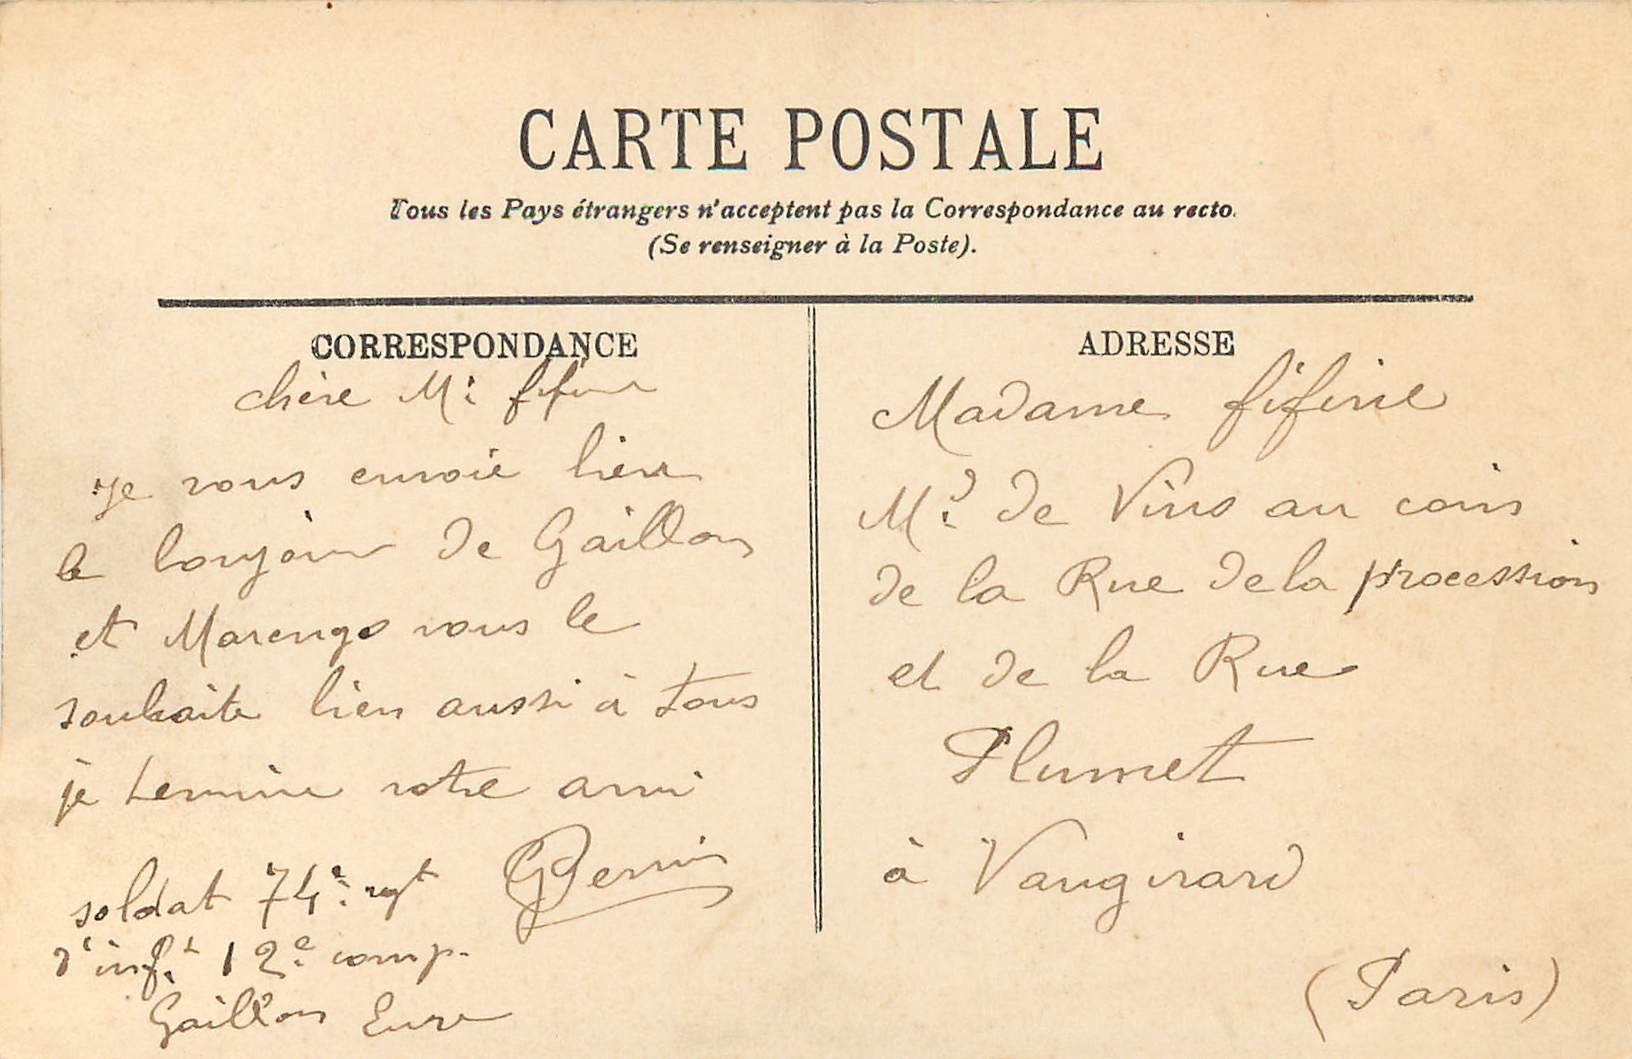 CARTE POSTALE
Tous les Pays étrangers n'acceptent pas la Correspondance au recto.
(Se renseigner à la Poste).
CORRESPONDANCE
chère M: fifine
Je vous envoie bien
le bonjour de Gaillon
et Marengo vous le
souhaite bien aussi à tous
je termine votre ami
soldat 74e rgt
d'inft 12e comp.
Gaillon Eure
ADRESSE
Madame fifine
Md de Vins au coin
de la Rue de la procession
et de la Rue
Plumet
à Vaugirard
(Paris)